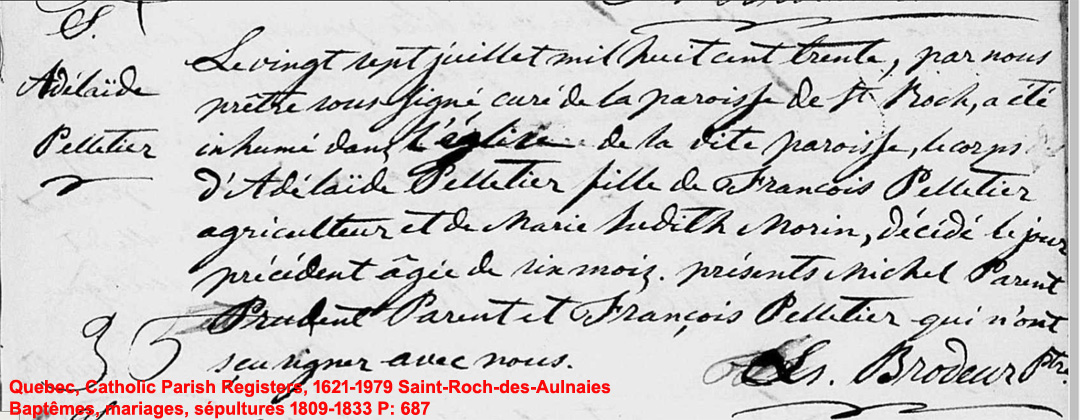 S.
Adélaïde
Pelletier
Le vingt sept juillet mil huit cent trente, par nous
prêtre sous signé curé de la paroisse de St Roch, a été
inhumé dans l'église de la dite paroisse, le corps
d'Adélaïde Pelletier fille de François Pelletier
agriculteur et de Marie Judith Morin, décédé le jour
précédent âgée de six mois. présents Michel Parent
Prudent Parent et François Pelletier qui n'ont
seu signer avec nous.
Chs. Brodeur Ptre.
35
Quebec, Catholic Parish Registers, 1621-1979 Saint-Roch-des-Aulnaies
Baptêmes, mariages, sépultures 1809-1833 P: 687